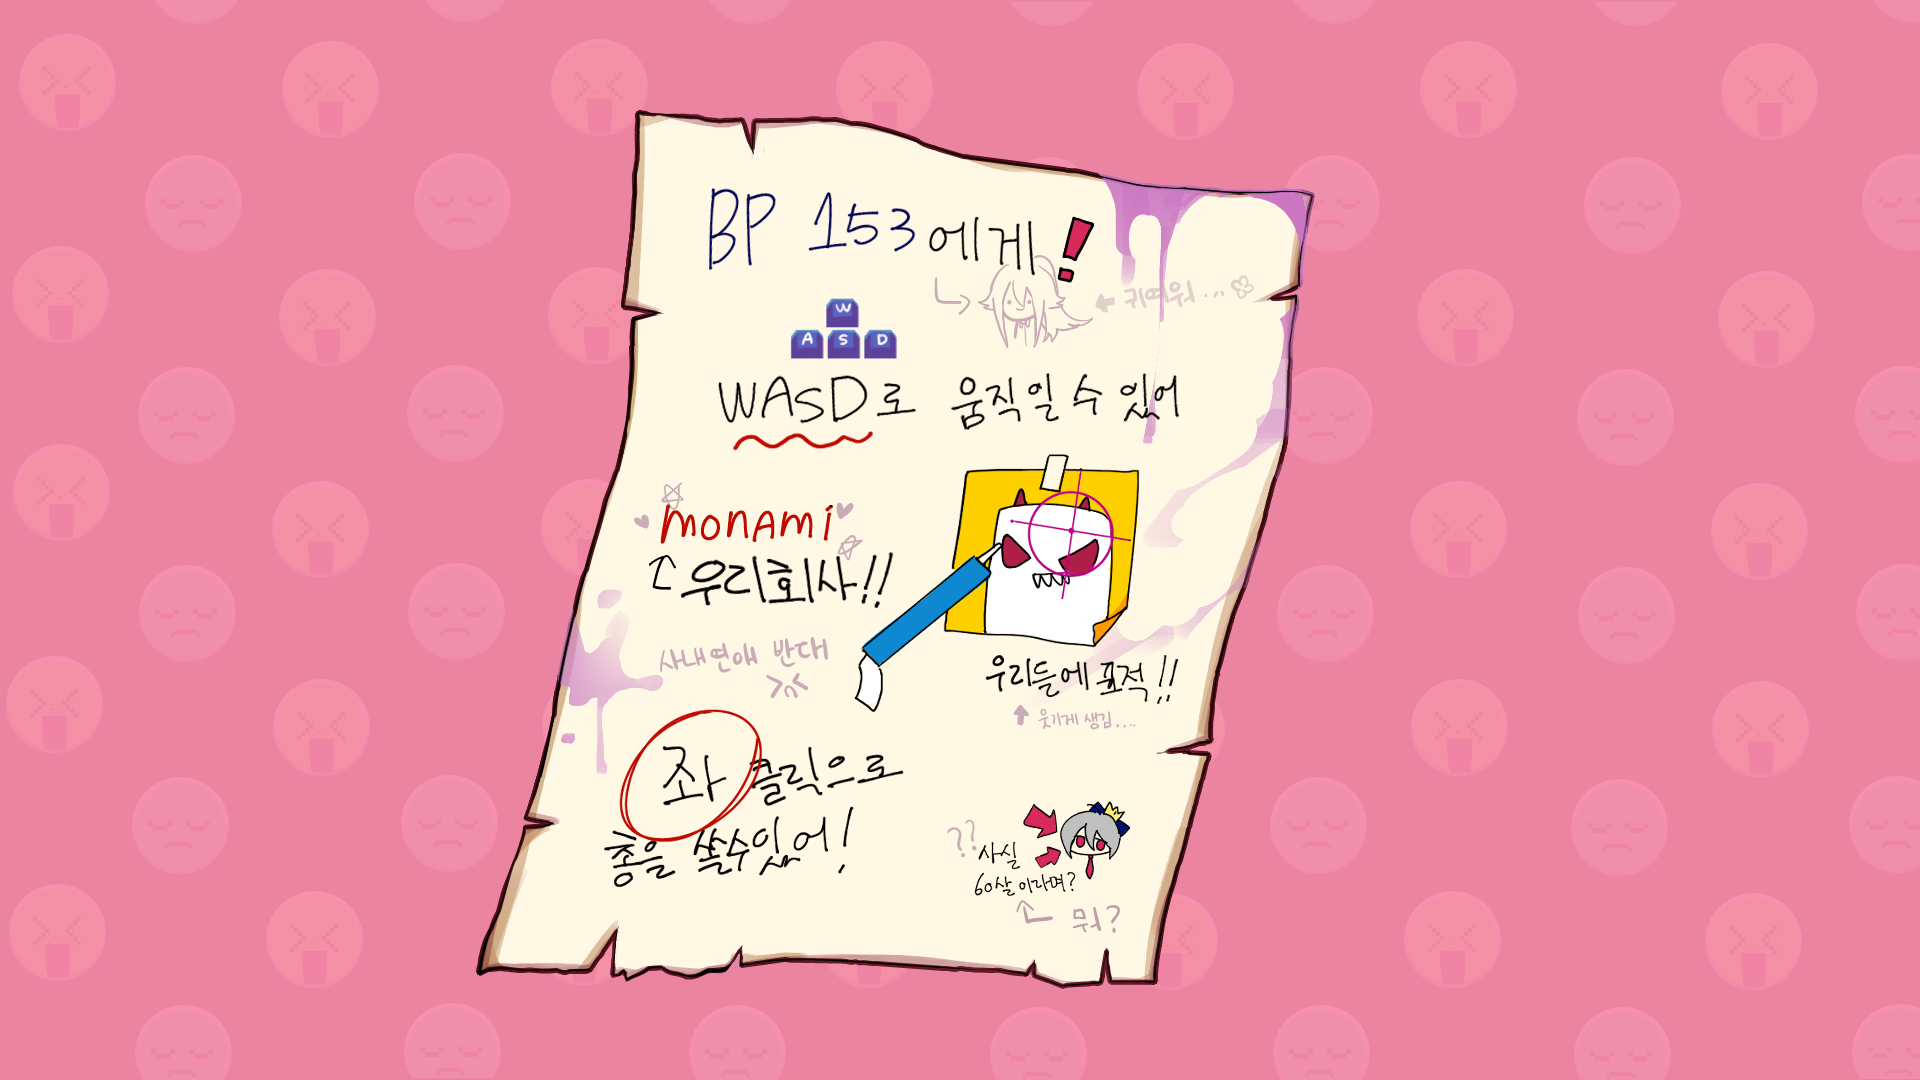 BP 153에게!
귀여워...
W
A S D
WASD로 움직일 수 있어
monami
우리회사!!
사내연애 반대
>n<
우리들에 표적!!
웃기게 생김....
좌 클릭으로
총을 쏠수있어!
??
사실
60살이라며?
뭐?